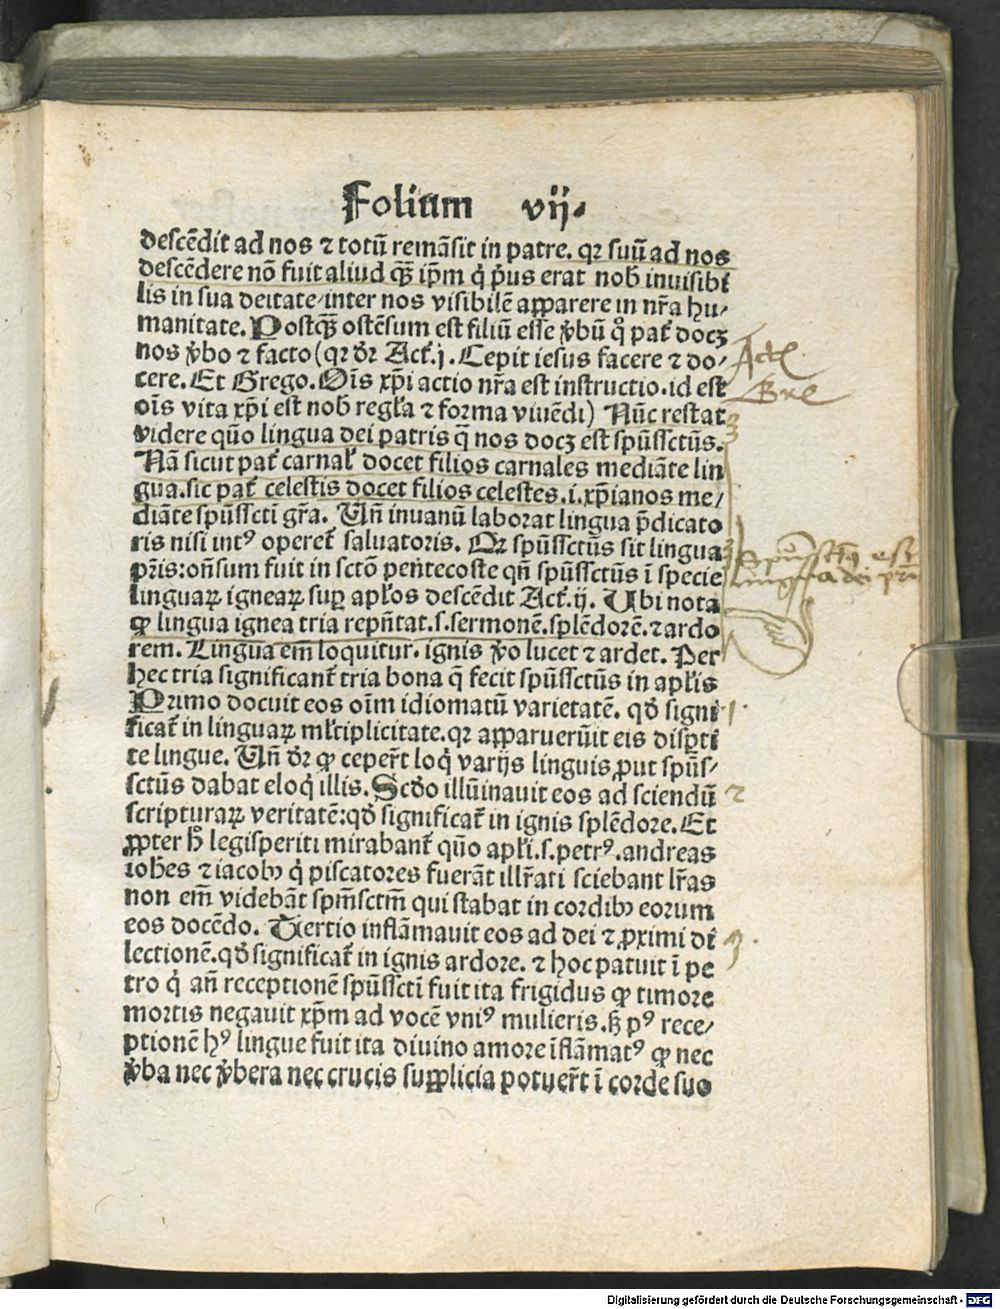 Folium vij.
descēdit ad nos ⁊ totū remāsit in patre. qꝛ suū ad nos
descēdere nō fuit aliud qꝫ̄ ip̄m q̇ pͥus erat nob̄ inuisibi
lis in sua deitate/inter nos visibilē apparere in nr̄a hu/
manitate. Postqꝫ̄ ostēsum est filiū esse v̄bū qͦ pat̄ docꝫ
nos v̄bo ⁊ facto (qꝛ dr̄ Act̄.j. Cepit iesus facere ⁊ do/
cere. Et Grego. Oīs xp̄i actio nr̄a est instructio.id est
oīs vita xp̄i est nob̄ regl̄a ⁊ forma viuēdi) Nūc restat
videre quō lingua dei patris q̄ nos docꝫ est spūssctūs.
Nā sicut pat̄ carnal̄ docet filios carnales mediāte lin
gua.sic pat̄ celestis docet filios celestes.i.xp̄ianos me/
diāte spūsscti gr̄a. Vn̄ inuanū laborat lingua p̄dicato
ris nisi intꝰ operet̄ saluatoris. Qꝛ spūssctūs sit lingua
pr̄is:on̄sum fuit in sctō pentecoste qn̄ spūssctūs ī specie
linguaꝝ igneaꝝ suꝑ apl̄os descēdit Act̄.ij. Vbi nota
ꝙ lingua ignea tria rep̄ntat.s.sermonē.splēdorē.⁊ardo
rem. Lingua em̄ loquitur. ignis v̄o lucet ⁊ ardet. Per
hec tria significant̄ tria bona q̄ fecit spūssctūs in apl̄is
Primo docuit eos oīm idiomatū varietatē. qd̄ signi
ficat̄ in linguaꝝ ml̄tiplicitate.qꝛ apparuerūt eis disꝑti
te lingue. Vn̄ dr̄ ꝙ ceper̄t loq̇ varijs linguis ꝓut spūs/
sctūs dabat eloq̇ illis. Scd̄o illūinauit eos ad sciendū
scripturaꝝ veritatē:qd̄ significat̄ in ignis splēdore. Et
ꝓpter hͦ legisperiti mirabant̄ quō apl̄i.s.petrꝰ.andreas
ioh̄es ⁊ iacobꝰ q̇ piscatores fuerāt illr̄ati sciebant lr̄as
non em̄ videbāt spm̄sctm̄ qui stabat in cordibꝫ eorum
eos docēdo. Tertio inflāmauit eos ad dei ⁊ ꝓximi di
lectionē.qd̄ significat̄ in ignis ardore. ⁊ hoc patuit ī pe
tro q̇ an̄ receptionē spūsscti fuit ita frigidus ꝙ timore
mortis negauit xp̄m ad vocē vniꝰ mulieris.sꝫ pꝰ rece/
ptionē hꝰ lingue fuit ita diuino amore īflāmatꝰ ꝙ nec
v̄ba nec v̄bera nec crucis supplicia potuer̄t ī corde suo
Act
Gre
spūs sctꝰ est
lingua dei pr̄is
1.
2
3.
Digitalisierung gefördert durch die Deutsche Forschungsgemeinschaft - DFG